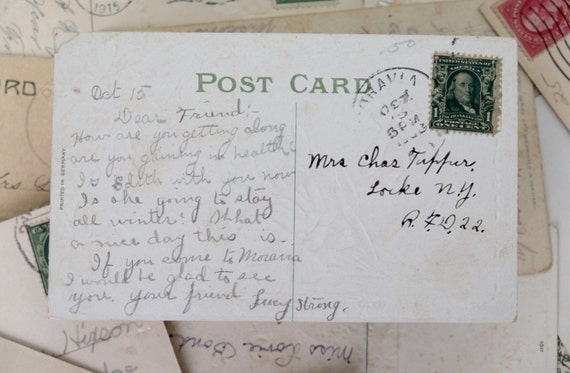 POST CARD
Oct 15
Dear Friend:-
How are you getting along
are you gaining in health?
Is Edith with you now
Is she going to stay
all winter? What
a nice day this is-
If you come to Moravia
I would be glad to see
you. your friend Lucy Strong.
PRINTED IN GERMANY.
MORAVIA
OCT
15
8 PM
1
Mrs Chas Tipper.
Locke N.Y.
R.F.D. 22.
1915
Miss